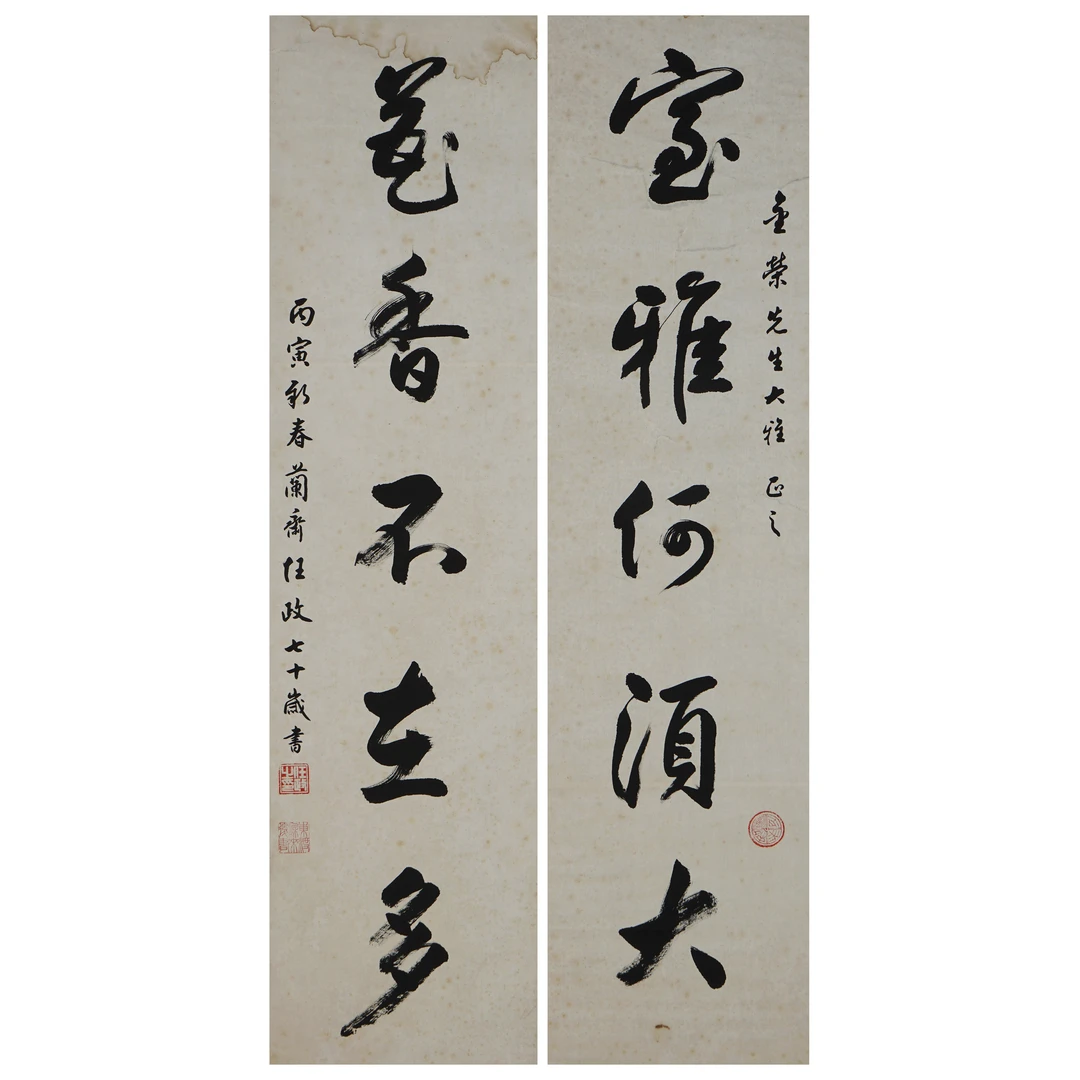 金榮先生大雅 正之
室雅何須大
花香不在多
丙寅新春蘭齋任政七十歲書